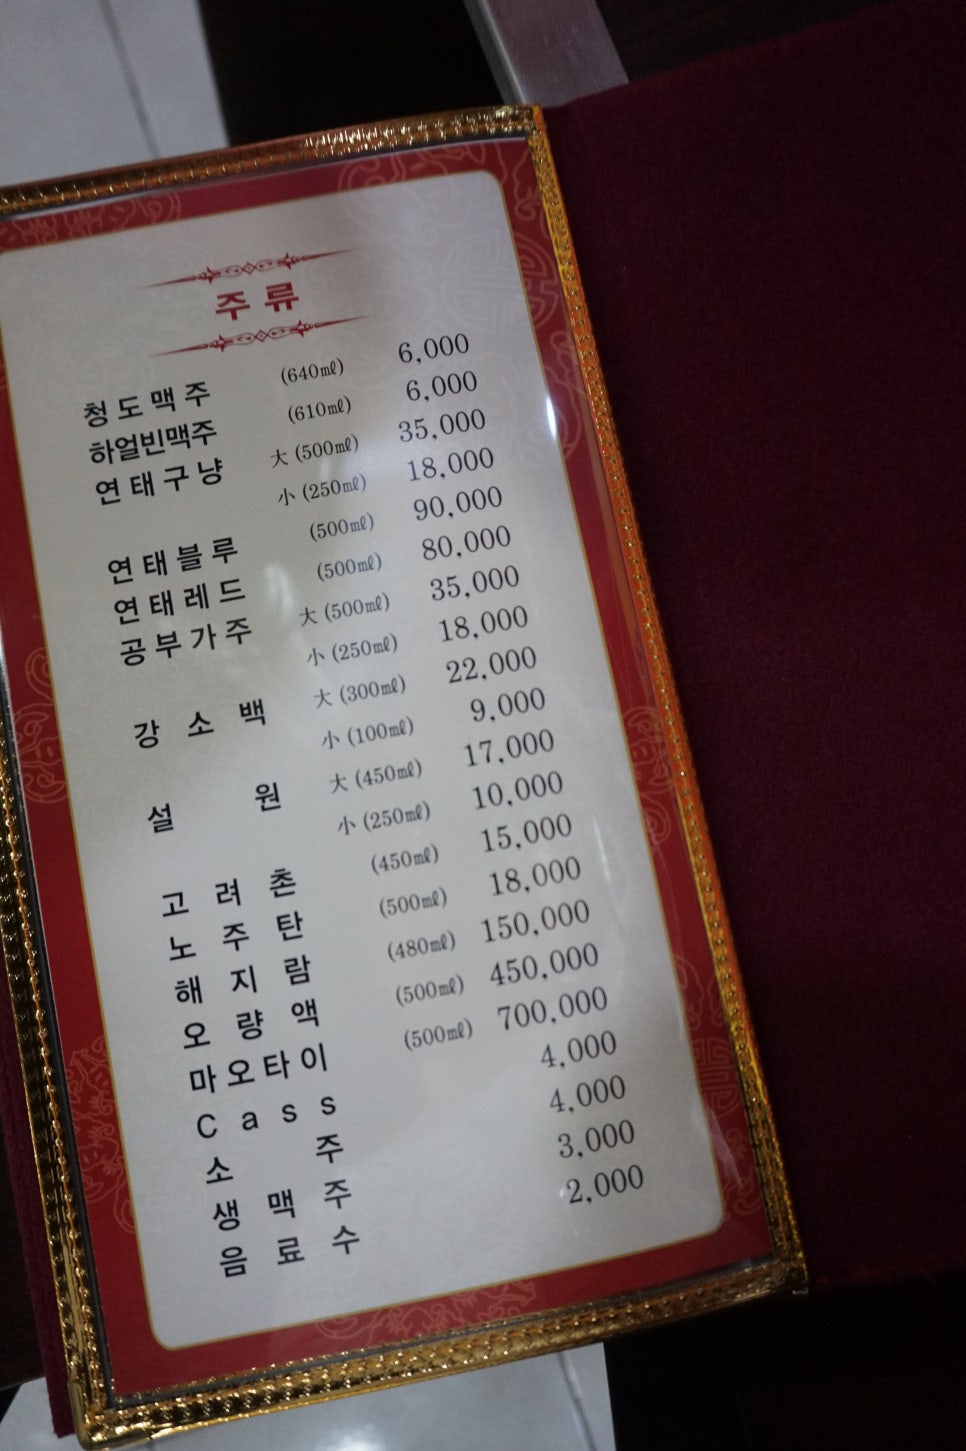 주류
청도맥주 (640㎖) 6,000
하얼빈맥주 (610㎖) 6,000
연태구냥 大 (500㎖) 35,000
小 (250㎖) 18,000
연태블루 (500㎖) 90,000
연태레드 (500㎖) 80,000
공부가주 大 (500㎖) 35,000
小 (250㎖) 18,000
강소백 大 (300㎖) 22,000
小 (100㎖) 9,000
설원 大 (450㎖) 17,000
小 (250㎖) 10,000
고려촌 (450㎖) 15,000
노주탄 (500㎖) 18,000
해지람 (480㎖) 150,000
오량액 (500㎖) 450,000
마오타이 (500㎖) 700,000
Cass 4,000
소주 4,000
생맥주 3,000
음료수 2,000